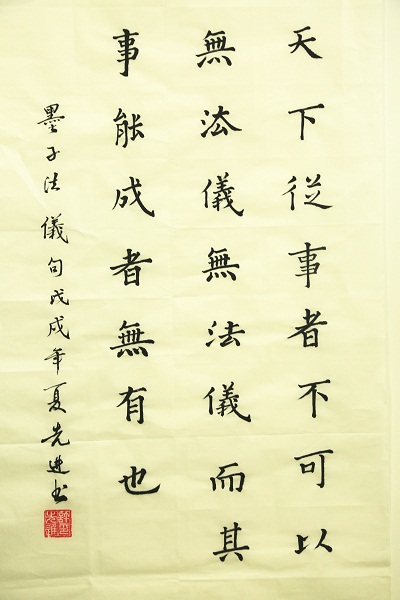 天下從事者不可以
無法儀無法儀而其
事能成者無有也
墨子法儀句戊戌年夏先進书